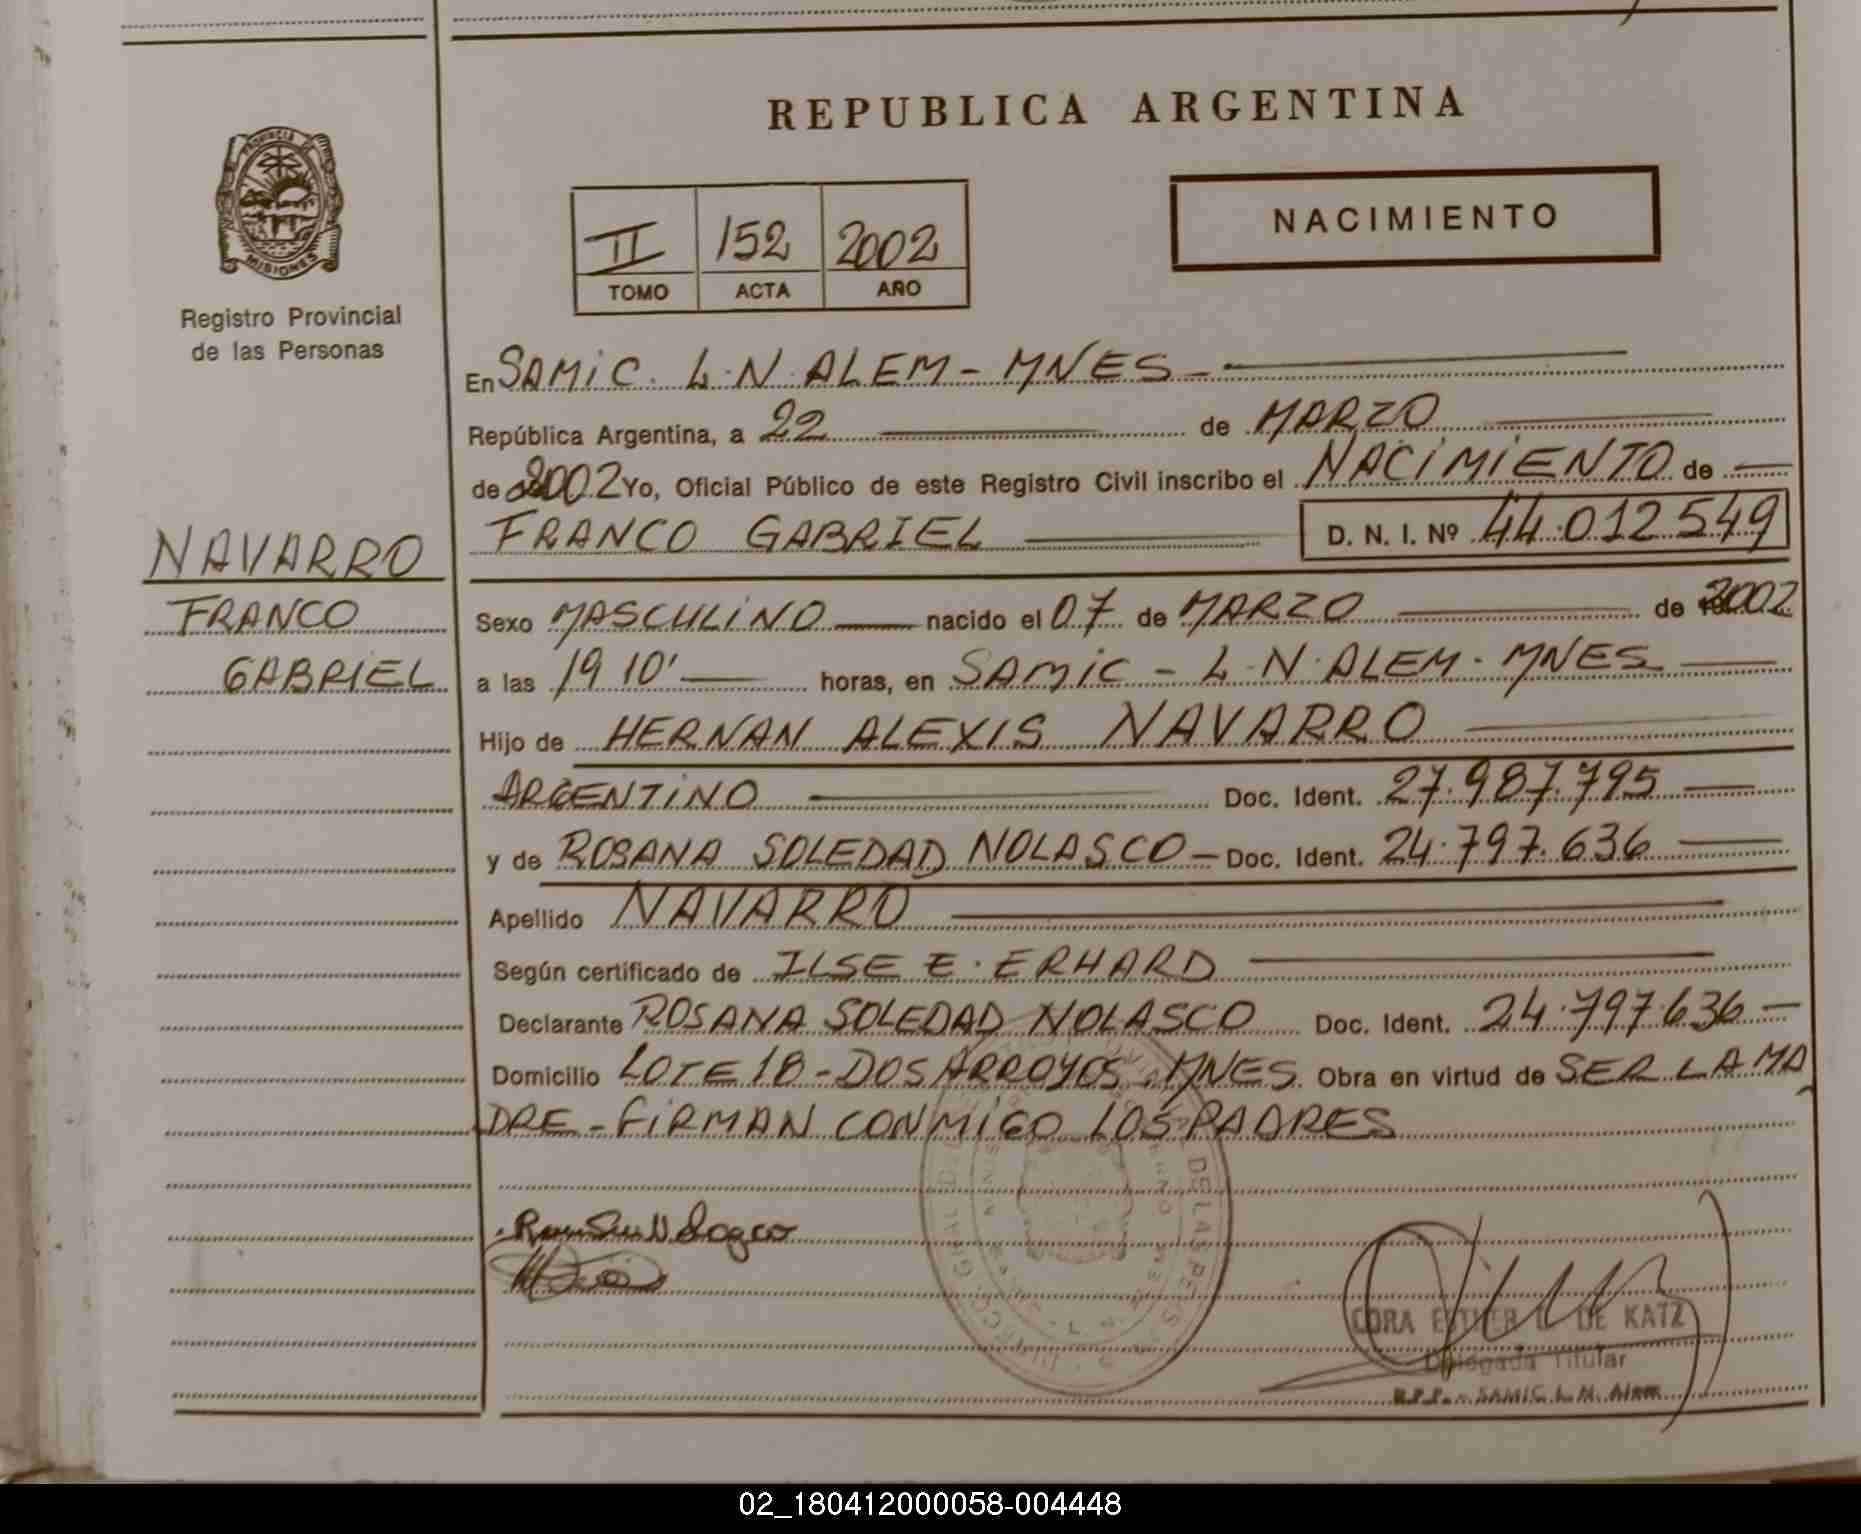 REPUBLICA ARGENTINA
PROVINCIA DE
MISIONES
Registro Provincial
de las Personas
II 152 2002
TOMO ACTA AÑO
NACIMIENTO
En SAMIC. L.N. ALEM - MNES -
República Argentina, a 22 de MARZO
de 2002 Yo, Oficial Público de este Registro Civil inscribo el NACIMIENTO de
FRANCO GABRIEL D. N. I. Nº 44.012.549
NAVARRO
FRANCO
GABRIEL
Sexo MASCULINO nacido el 07 de MARZO de 2002
a las 19 10' horas, en SAMIC - L.N. ALEM. MNES
Hijo de HERNAN ALEXIS NAVARRO
ARGENTINO Doc. Ident. 27.987.795
y de ROSANA SOLEDAD NOLASCO - Doc. Ident. 24.797.636
Apellido NAVARRO
Según certificado de ILSE E. ERHARD
Declarante ROSANA SOLEDAD NOLASCO Doc. Ident. 24.797.636 -
Domicilio LOTE 18 - DOS ARROYOS. MNES Obra en virtud de SER LA MA
DRE - FIRMAN CONMIGO LOS PADRES
DE LAS PERS
CORA ESTHER DE KATZ
Delegada Titular
R.P.P. - SAMIC L.N. Alem
02_180412000058-004448